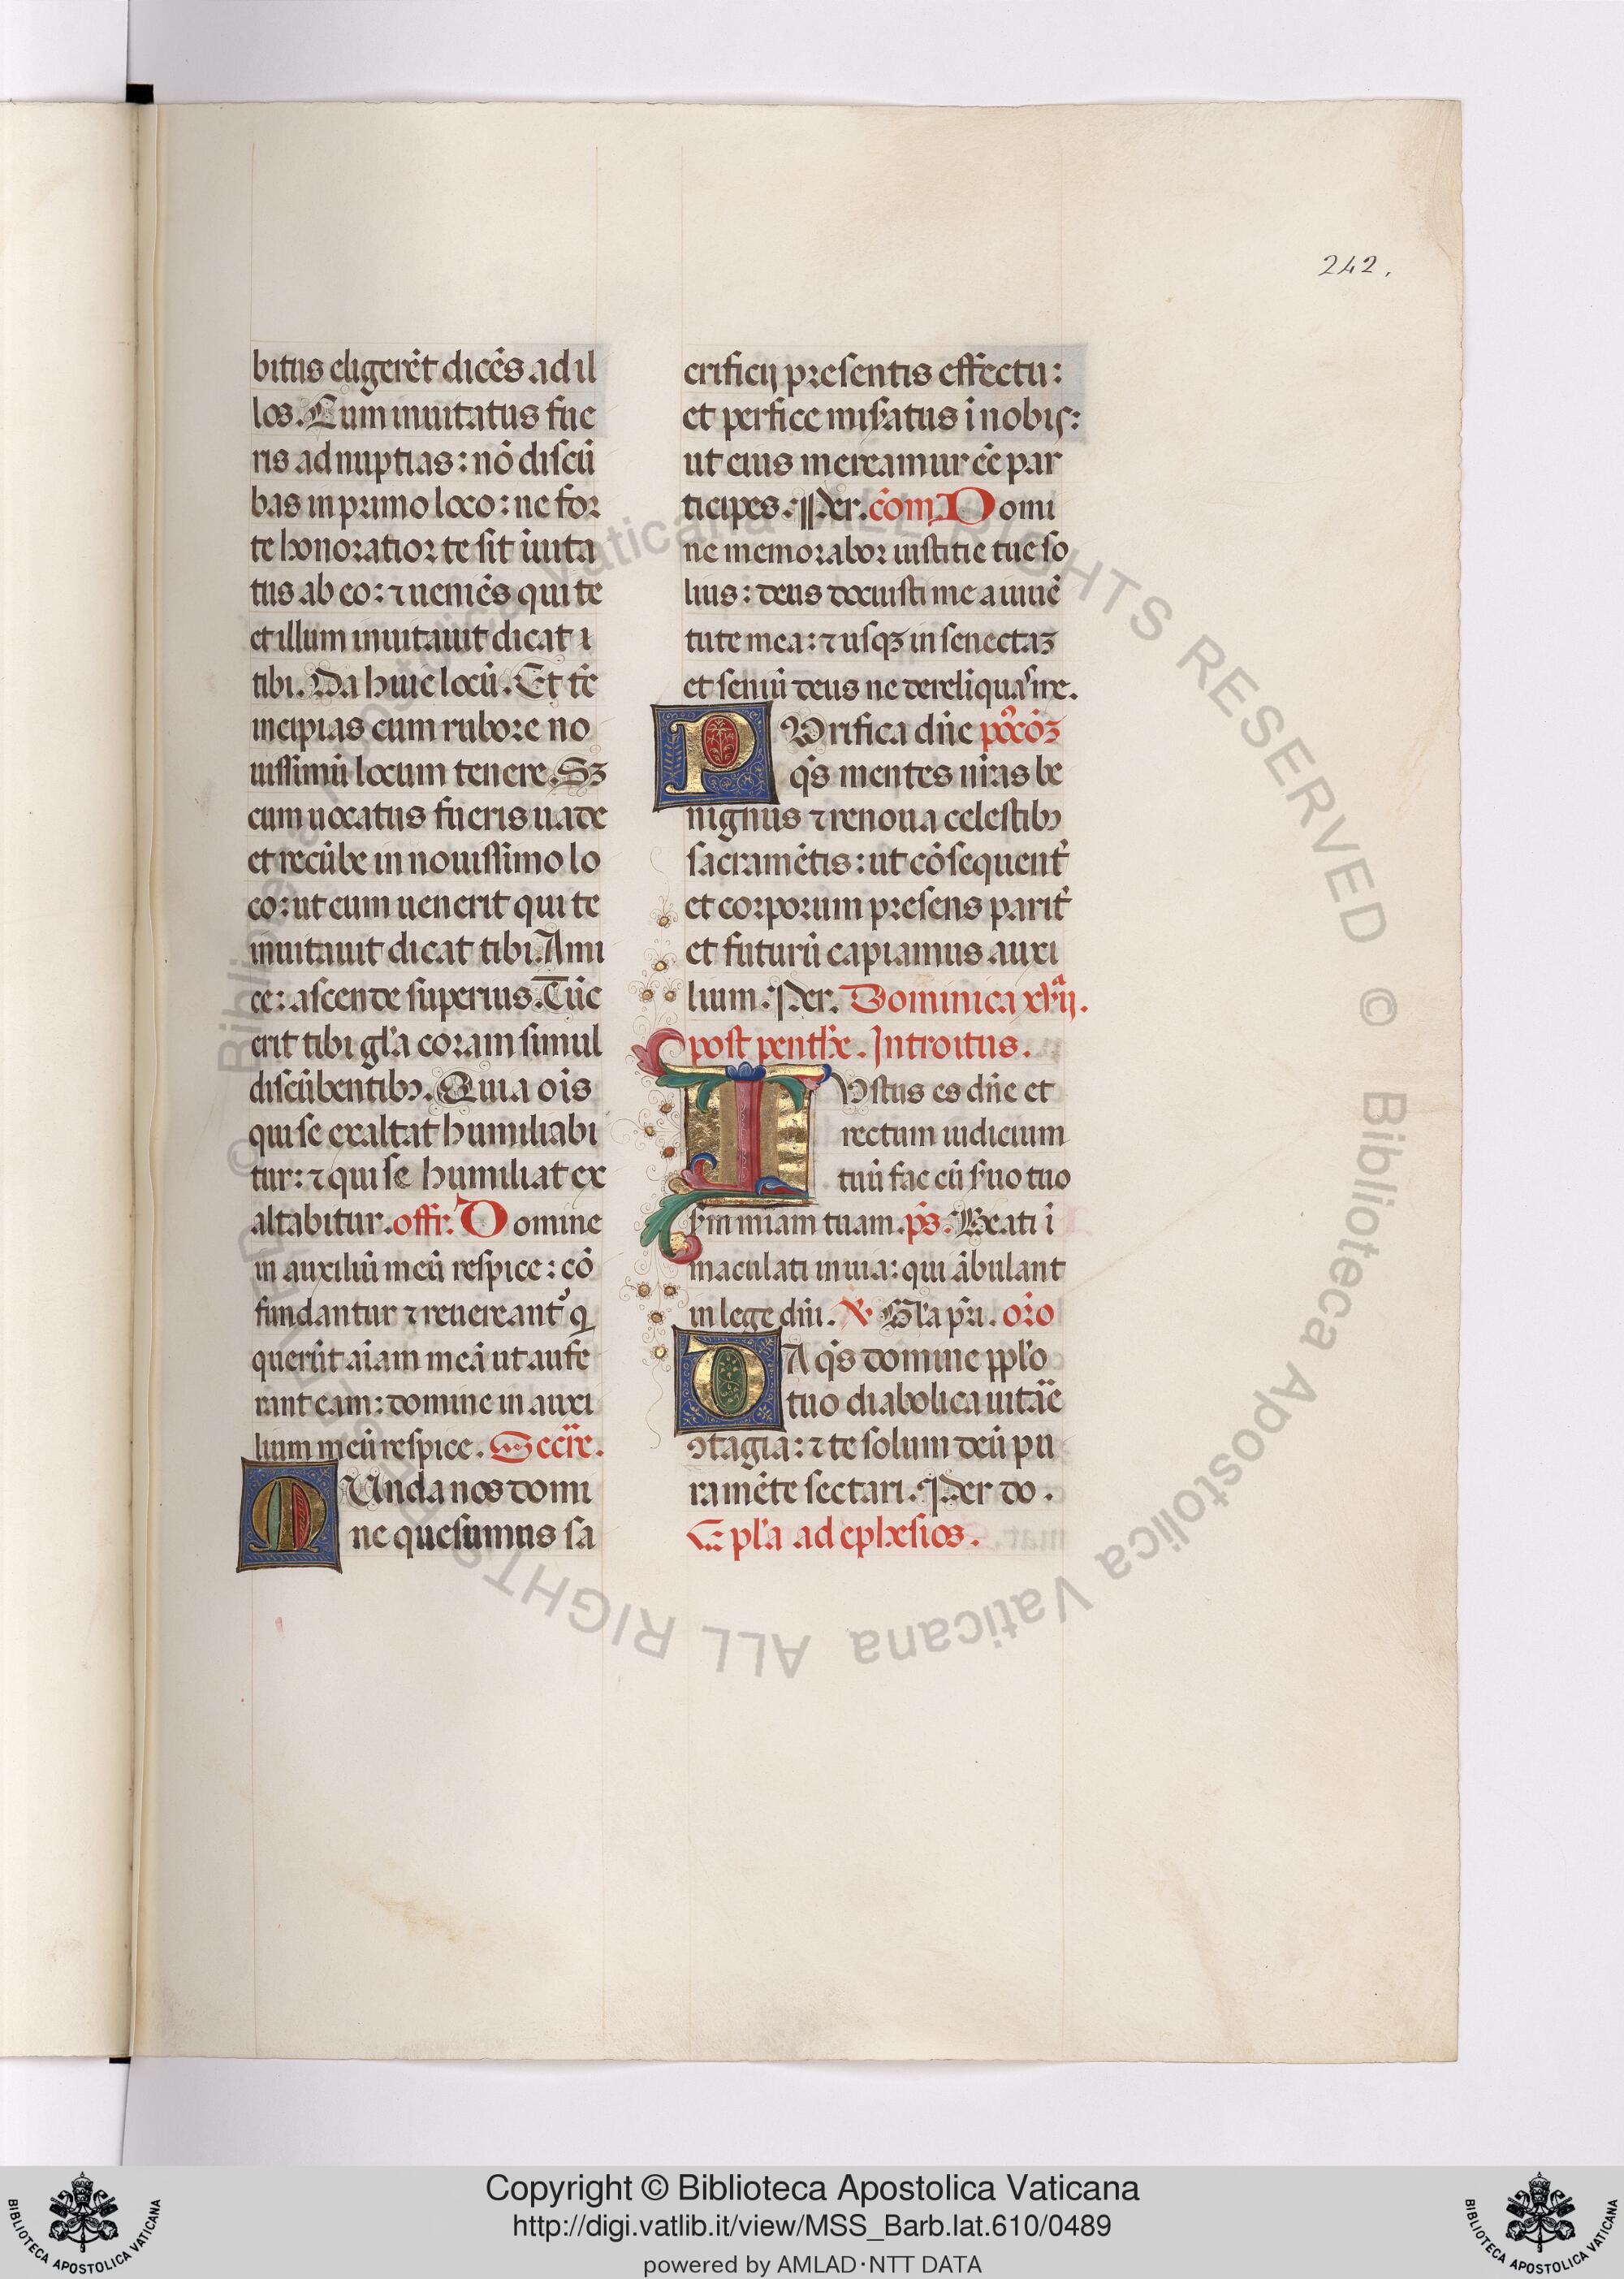 242.
bitus eligerēt dicēs ad il
los. Cum inuitatus fue
ris ad nuptias: nō discū
bas in primo loco: ne for
te honoratior te sit īuita
tus ab eo: ⁊ ueniēs qui te
et illum inuitauit dicat i
tibi. Da huic locū. Et tē
incipias cum rubore no
uissimū locum tenere. Sꝫ
cum uocatus fueris uade
et recūbe in nouissimo lo
co: ut cum uenerit qui te
inuitauit dicat tibi. Ami
ce: ascende superius. Tūc
erit tibi gl'a coram simul
discūbentibꝫ. Quia oīs
qui se exaltat humiliabi
tur: ⁊ qui se humiliat ex
altabitur. offr. Domine
in auxiliū meū respice: cō
fundantur ⁊ reuereant᷑ q
querūt aīam meā ut aufe
rant eam: domine in auxi
lium meū respice. Secrē.
MUnda nos domi
ne quesumus sa
crificij presentis effectu:
et perfice mis̄atus ī nobis:
ut eius mereamur eē par
ticipes. Per. cōm. Domi
ne memorabor iustitie tue so
lius: deus docuisti me a iuuē
tute mea: ⁊ usqꝫ in senectaꝫ
et seniū deus ne derelīquas me.
PUrifica dn̄e pꝯcōꝫ
q̄s mentes nr̄as be
nignus ⁊ renoua celestibꝫ
sacramētis: ut cōsequent᷑
et corporum presens parit᷑
et futurū capiamus auxi
lium. Per. Dominica xvij.
post penthe. Introitus.
IUstus es dn̄e et
rectum iudicium
tuū fac cū s̄uo tuo
s̄m miam tuam. ps̄. Beati ī
maculati in uia: qui ābulant
in lege dn̄i. ℣ Gl'a pr̄i. or̄o
DA q̄s domine ppl'o
tuo diabolica uitāe
ꝯtagia: ⁊ te solum deū pu
ra mēte sectari. Per do.
Epl'a ad ephesios.
Copyright © Biblioteca Apostolica Vaticana
http://digi.vatlib.it/view/MSS_Barb.lat.610/0489
powered by AMLAD·NTT DATA
BIBLIOTECA APOSTOLICA VATICANA
BIBLIOTECA APOSTOLICA VATICANA
© Biblioteca Apostolica Vaticana ALL RIGHTS RESERVED
© Biblioteca Apostolica Vaticana ALL RIGHTS RESERVED